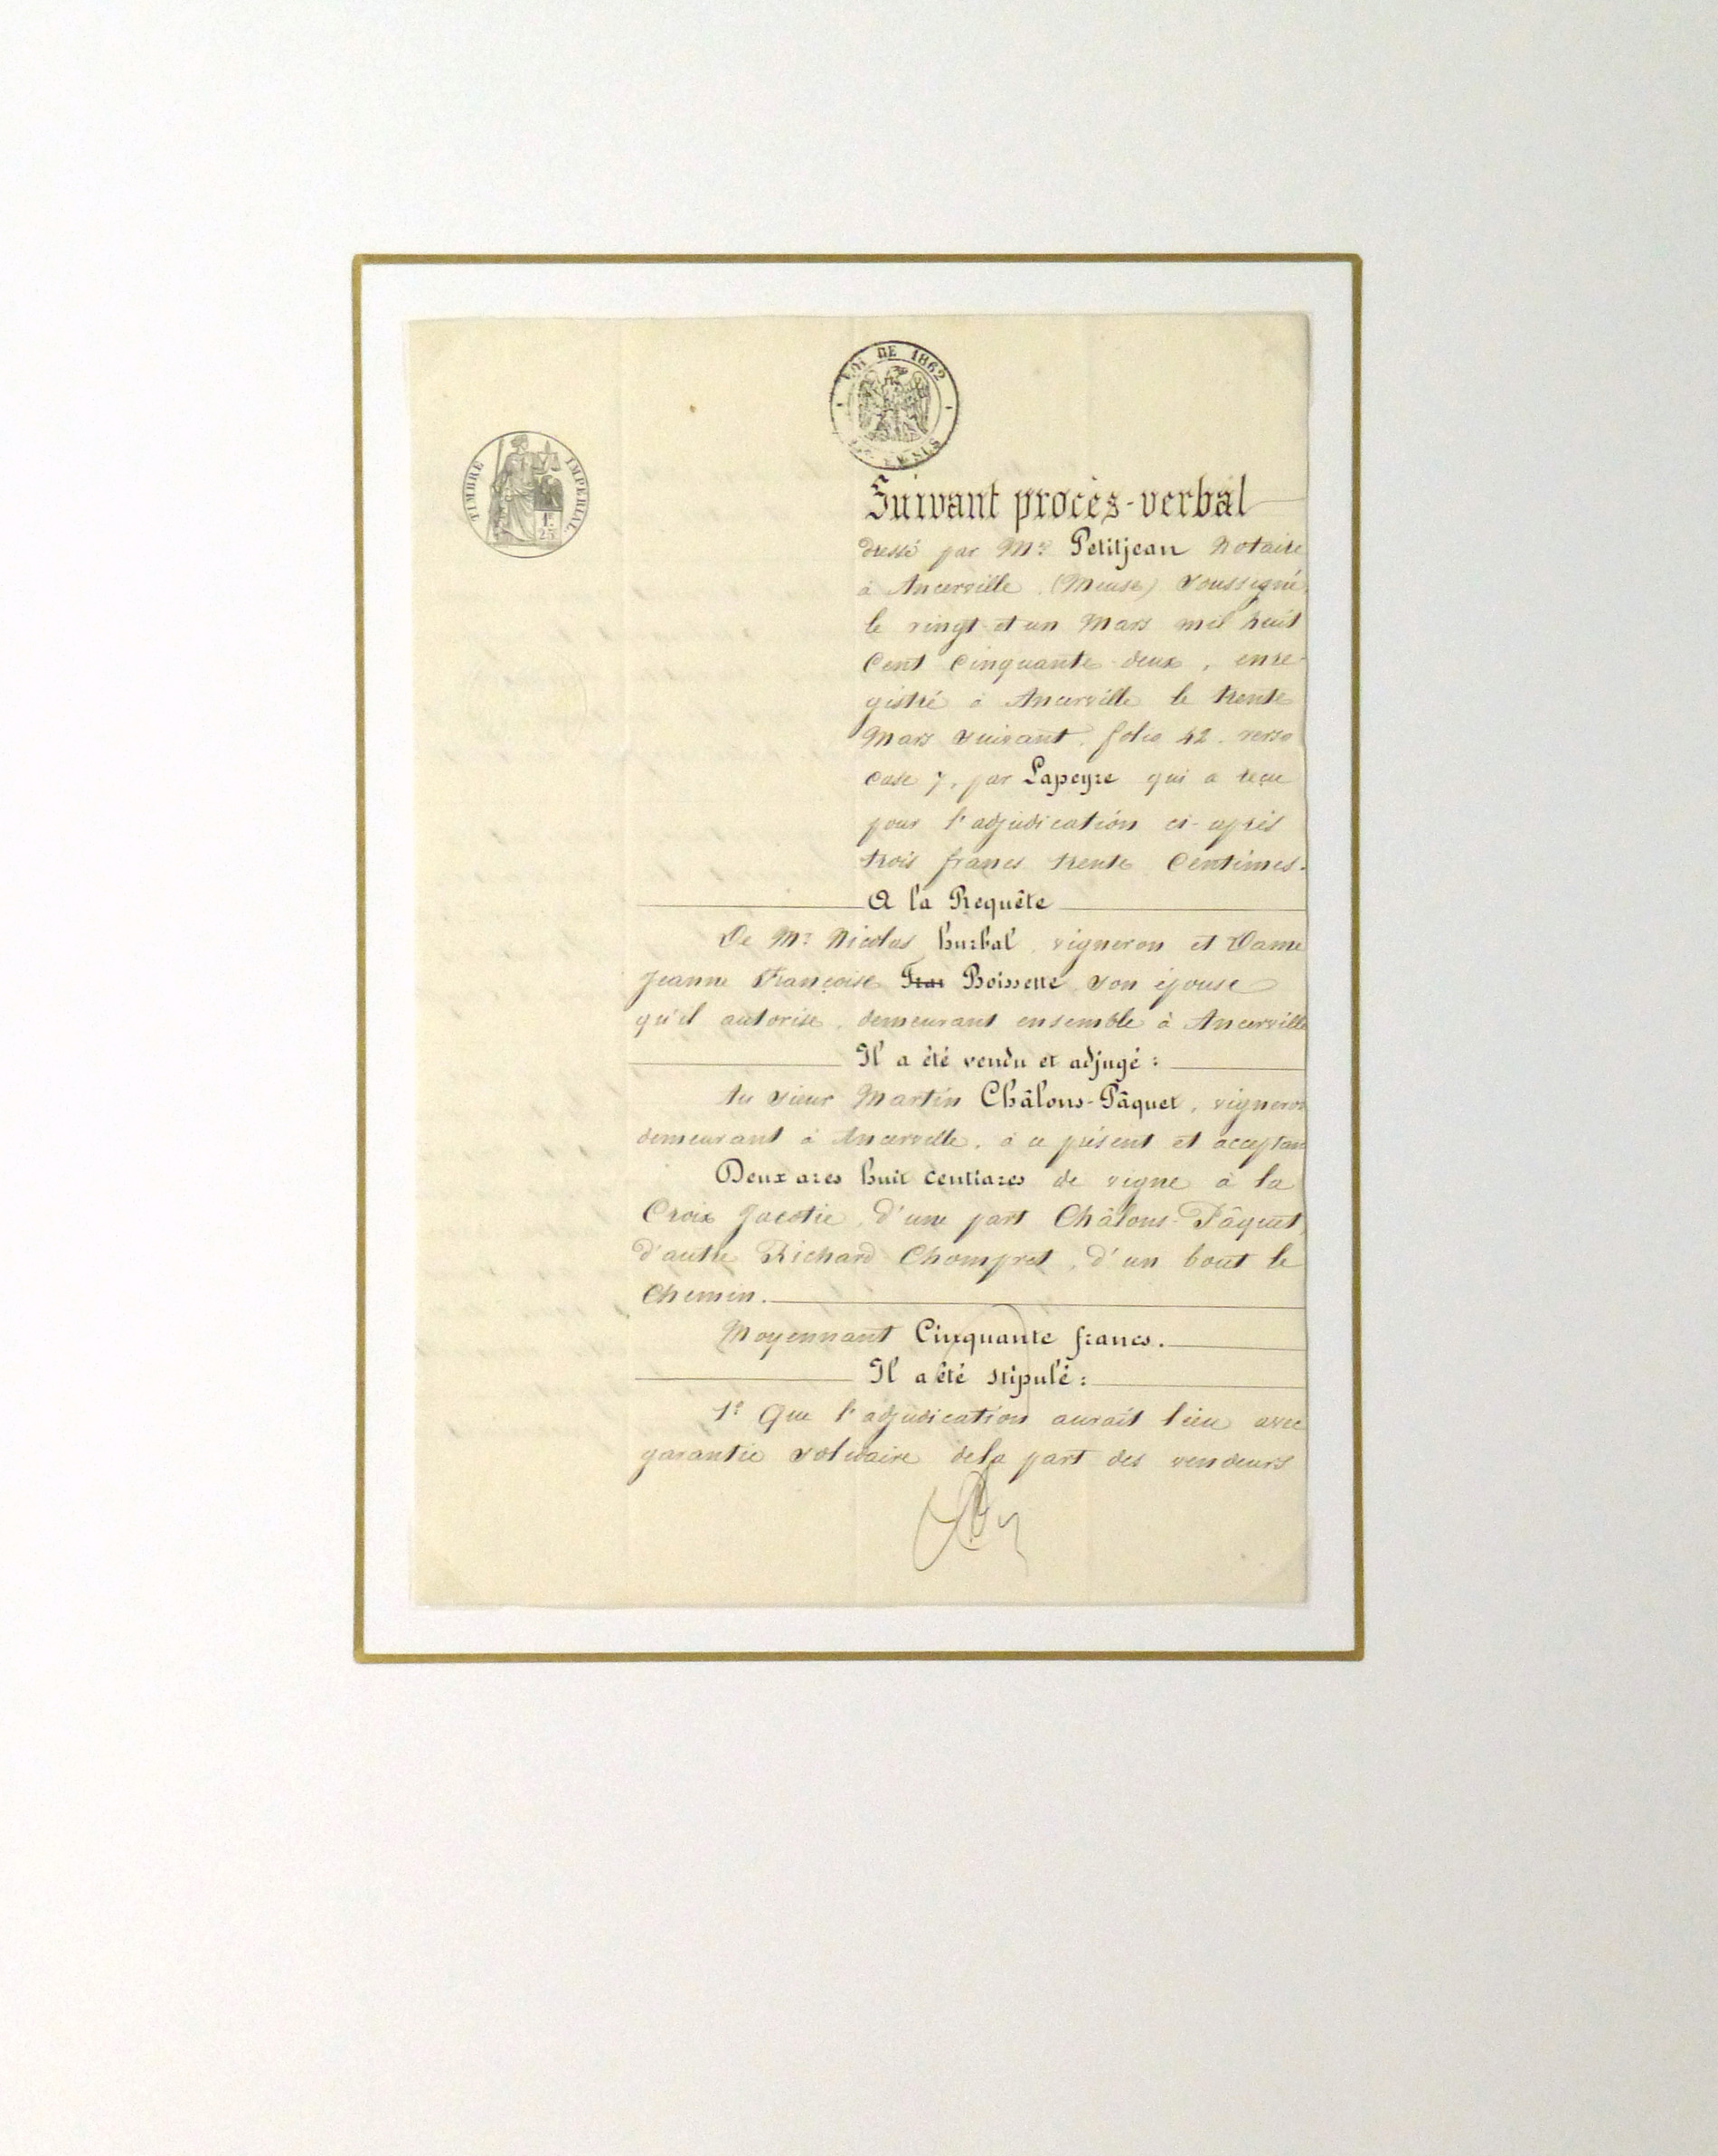 LOI DE 1862
TIMBRE IMPERIAL
1F
25
Suivant procès-verbal
dressé par Mᵉ Petitjean Notaire
à Ancerville (Meuse) soussigné,
le vingt et un Mars mil huit
Cent Cinquante deux, enre-
gistré à Ancerville le trente
Mars suivant, folio 42 verso
Case 7, par Lapeyre qui a reçu
pour l'adjudication ci-après
trois francs trente Centimes.
A la Requête
De Mʳ Nicolas hurbal, vigneron et Dame
Jeanne Françoise Fras Boissette son épouse
qu'il autorise, demeurant ensemble à Ancerville
Il a été vendu et adjugé :
Au sieur Martin Châlons-Pâquet, vigneron
demeurant à Ancerville, à ce présent et acceptan
Deux ares huit centiares de vigne à la
Croix Jacotie, d'une part Châlons-Pâquet,
d'autre Richard Chompret, d'un bout le
Chemin.
Moyennant Cinquante francs.
Il a été stipulé :
1º Que l'adjudication aurait lieu avec
garantie solidaire dela part des vendeurs